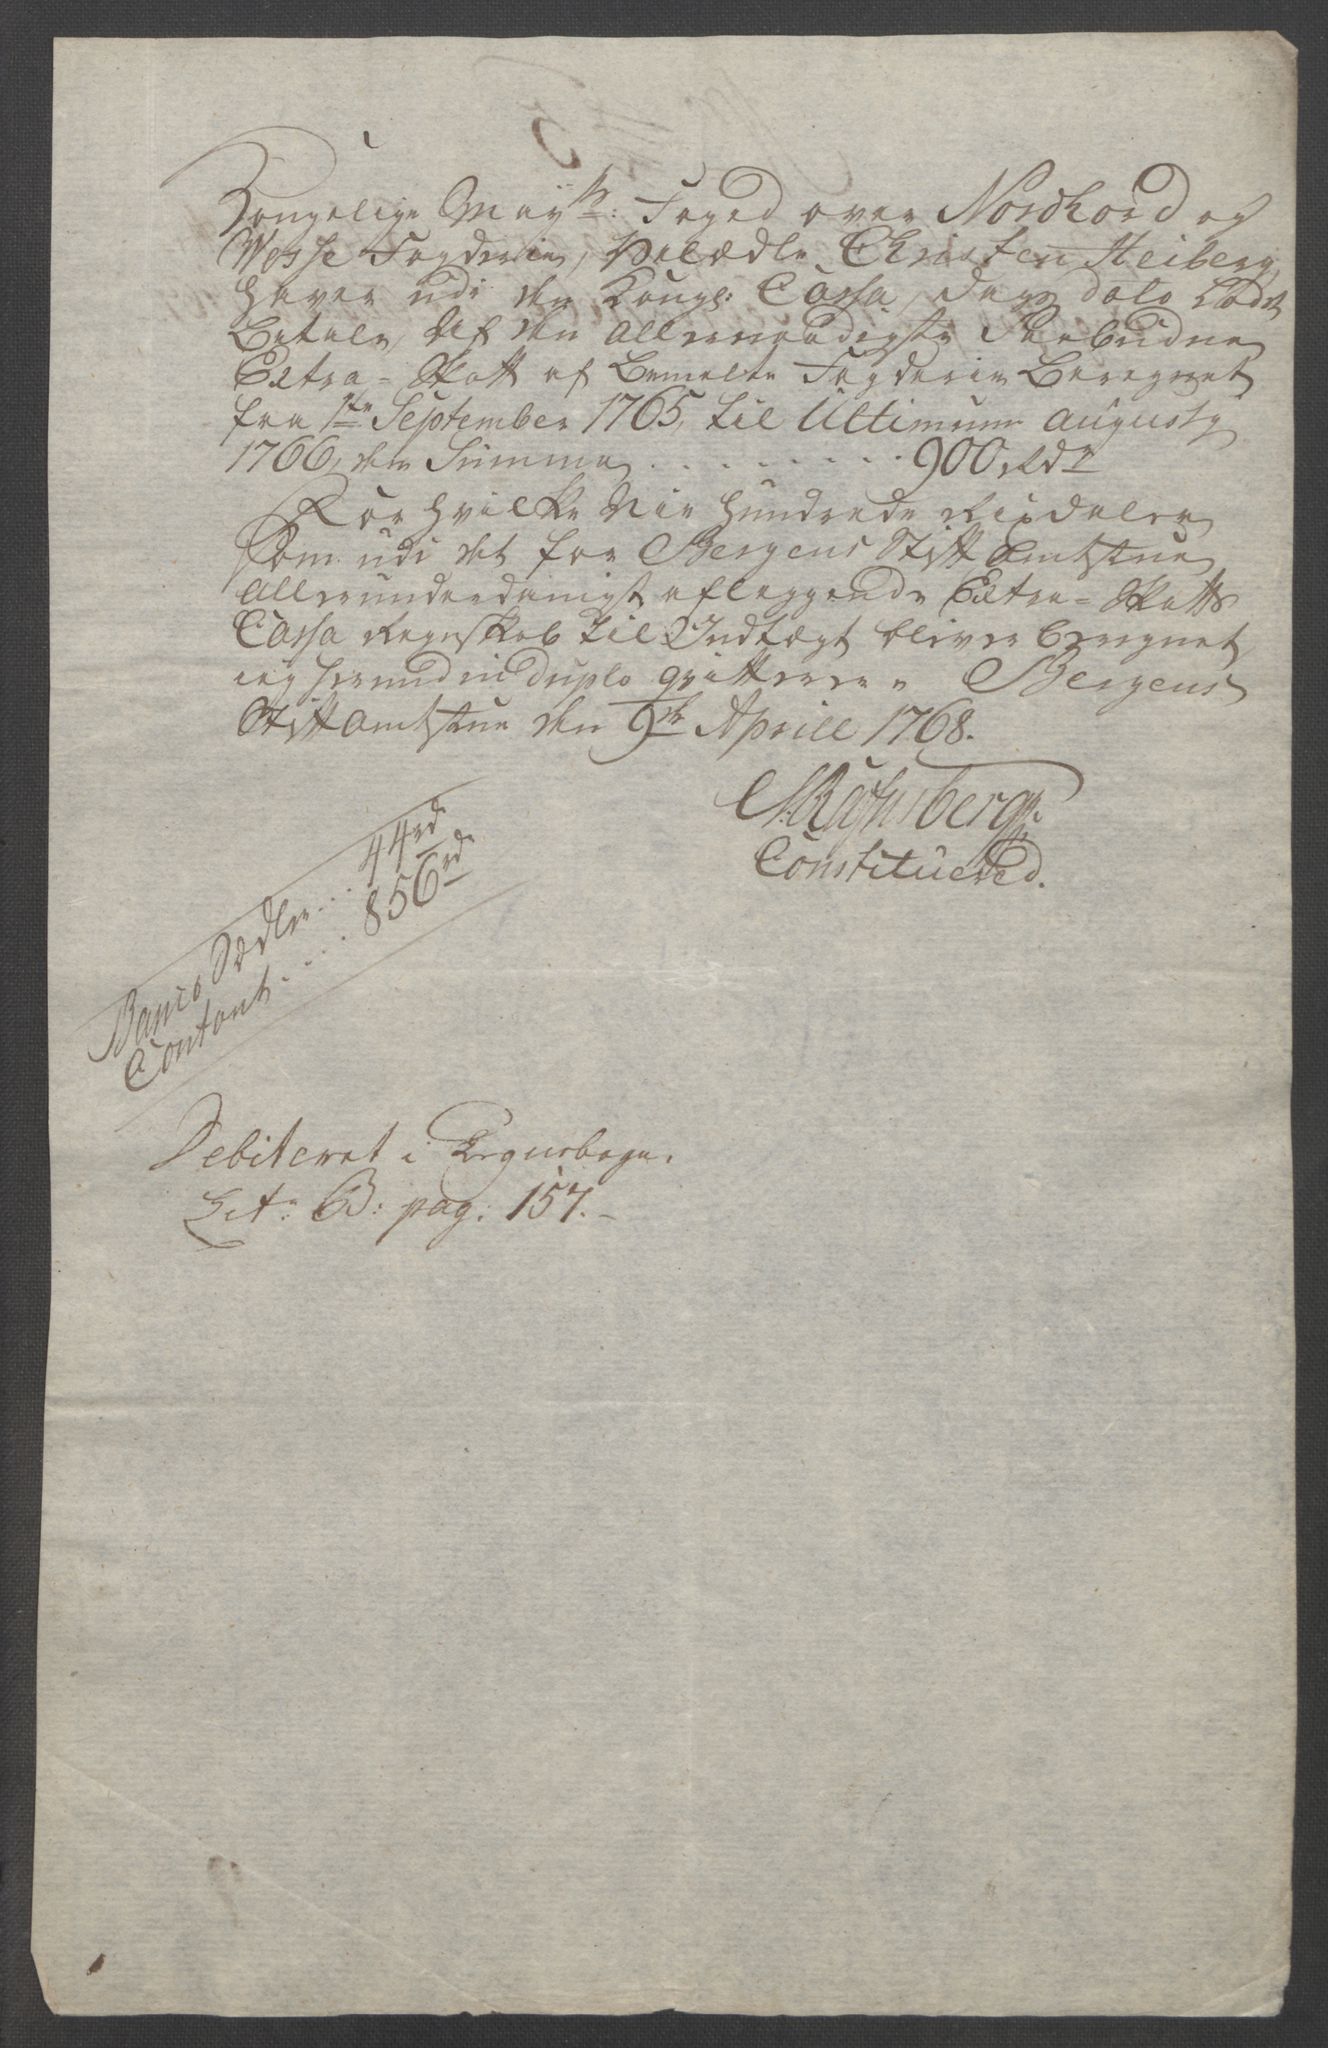 Kongelige May.ts Foged over Nordhord og
Wosse Fogderie, Velædle Christen Heiberg,
haver udi den Kongl: Cassa, dags dato ladet
betale, Af den Allernaadigste Paabudne
Extra-Skatt af bemelte Fogderie beregnet
fra 1ste September 1765, til Ultimum Augusty
1766, den Summa . . . . . . . . . 900 rdr
For hvilke Nie hundrede Rixdaler
som udi det for Bergens Stiftamtstue
allerunderdanigst aflæggende Extra-Skatts
Cassa Regnskab til Indtægt bliver beregnet
ieg herved in duplo qvitterer. Bergens
Stiftamtstue den 9de Aprill 1768.
Constituered.
Banco Sædler . . . 44 rd
Contant . . . . 856 rd
Debiteret i Regnebogen
Lit. B: pag: 157.-